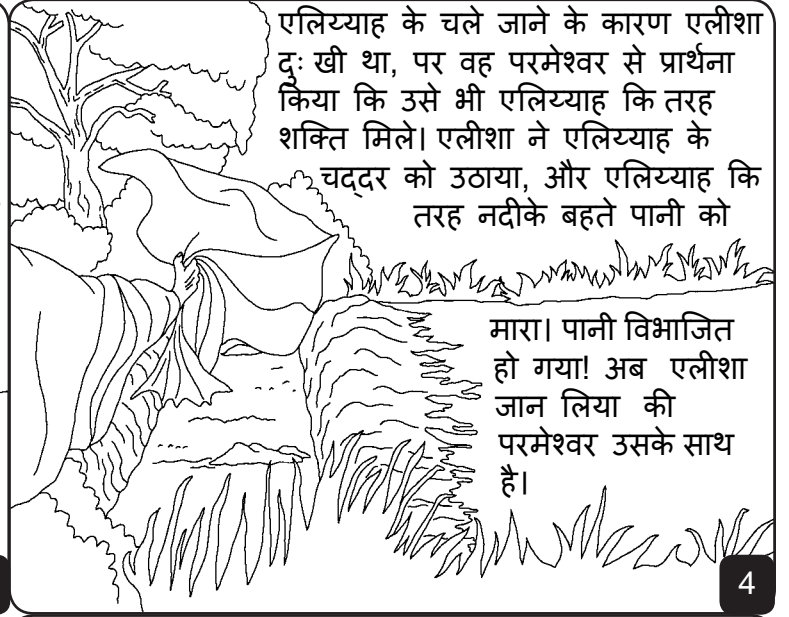 एलिय्याह के चले जाने के कारण एलीशा
दुः खी था, पर वह परमेश्वर से प्रार्थना
किया कि उसे भी एलिय्याह कि तरह
शक्ति मिले। एलीशा ने एलिय्याह के
चद्दर को उठाया, और एलिय्याह कि
तरह नदीके बहते पानी को
मारा। पानी विभाजित
हो गया! अब एलीशा
जान लिया की
परमेश्वर उसके साथ
है।
4